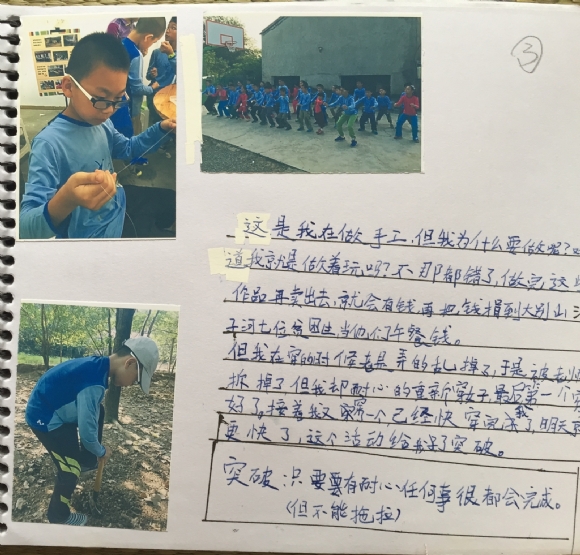 ③
这是我在做手工，但我为什么要做呢？
道我就是做着玩吗？不，那都错了，做完这
作品再卖出去，就会有钱，再把钱捐到大别山
子河七位贫困生当他们午餐钱。
但我在穿的时候老是弄的乱掉了，于是被老师
拆掉了但我却耐心的重新穿最后第一个
好了，接着我又一个，已经快穿满了，明天
更快了，这个活动给我了突破。
突破：只要有耐心任何事都会完成。
（但不能拖拉）